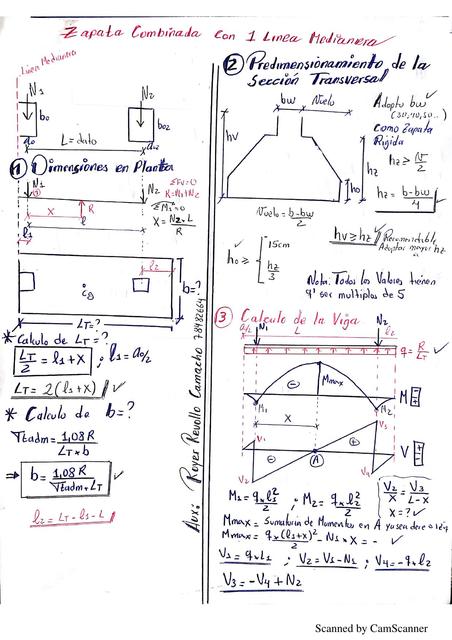 Zapata Combinada con 1 Linea Medianera
Linea Medianera
N1
N2
b0
b02
a0
a02
L = dato
① Dimensiones en Planta
N1
N2
ΣFv=0
R=N1+N2
R
x
l
l1
ΣM1=0
X = N2·L / R
l2
CG
b=?
LT=?
* Calculo de LT=?
LT/2 = l1+X ; l1 = a0/2
LT = 2(l1+X) ✓
* Calculo de b=?
σtadm = 1,08 R / LT × b
⇒ b = 1,08 R / σtadm · LT ✓
l2 = LT - l1 - L
Aux: Royer Revollo Camacho 78482664
② Predimensionamiento de la
Sección Transversal
bw
Nuelo
hv
hz
ho
Nuelo = b-bw / 2
Adopto bw ✓
(30,40,50..)
como Zapata
Rigida
hz ≥ N/2
hz = b-bw / 4
hv ≥ hz ✓
Recomendable
Adoptar mayor hz
ho ≥ { 15cm
hz/3
Nota: Todos los Valores tienen
q' ser multiplos de 5
③ Calculo de la Viga
a/2
N1
L
N2
l2
q = R/LT ✓
Mmax
M
M1
M2
X
V1
V3
V
V2
V4
A
M1 = q×l1²/2 ; M2 = q×l2²/2
V2/X = V3/L-X
X=? ✓
Mmax = Sumatoria de Momentos en A ya sea der o izq
Mmax = q×(l1+x)²/2 - N1×X = - ✓
V1 = q×l1 ; V2 = V1-N1 ; V4 = -q×l2
V3 = -V4 + N2
Scanned by CamScanner